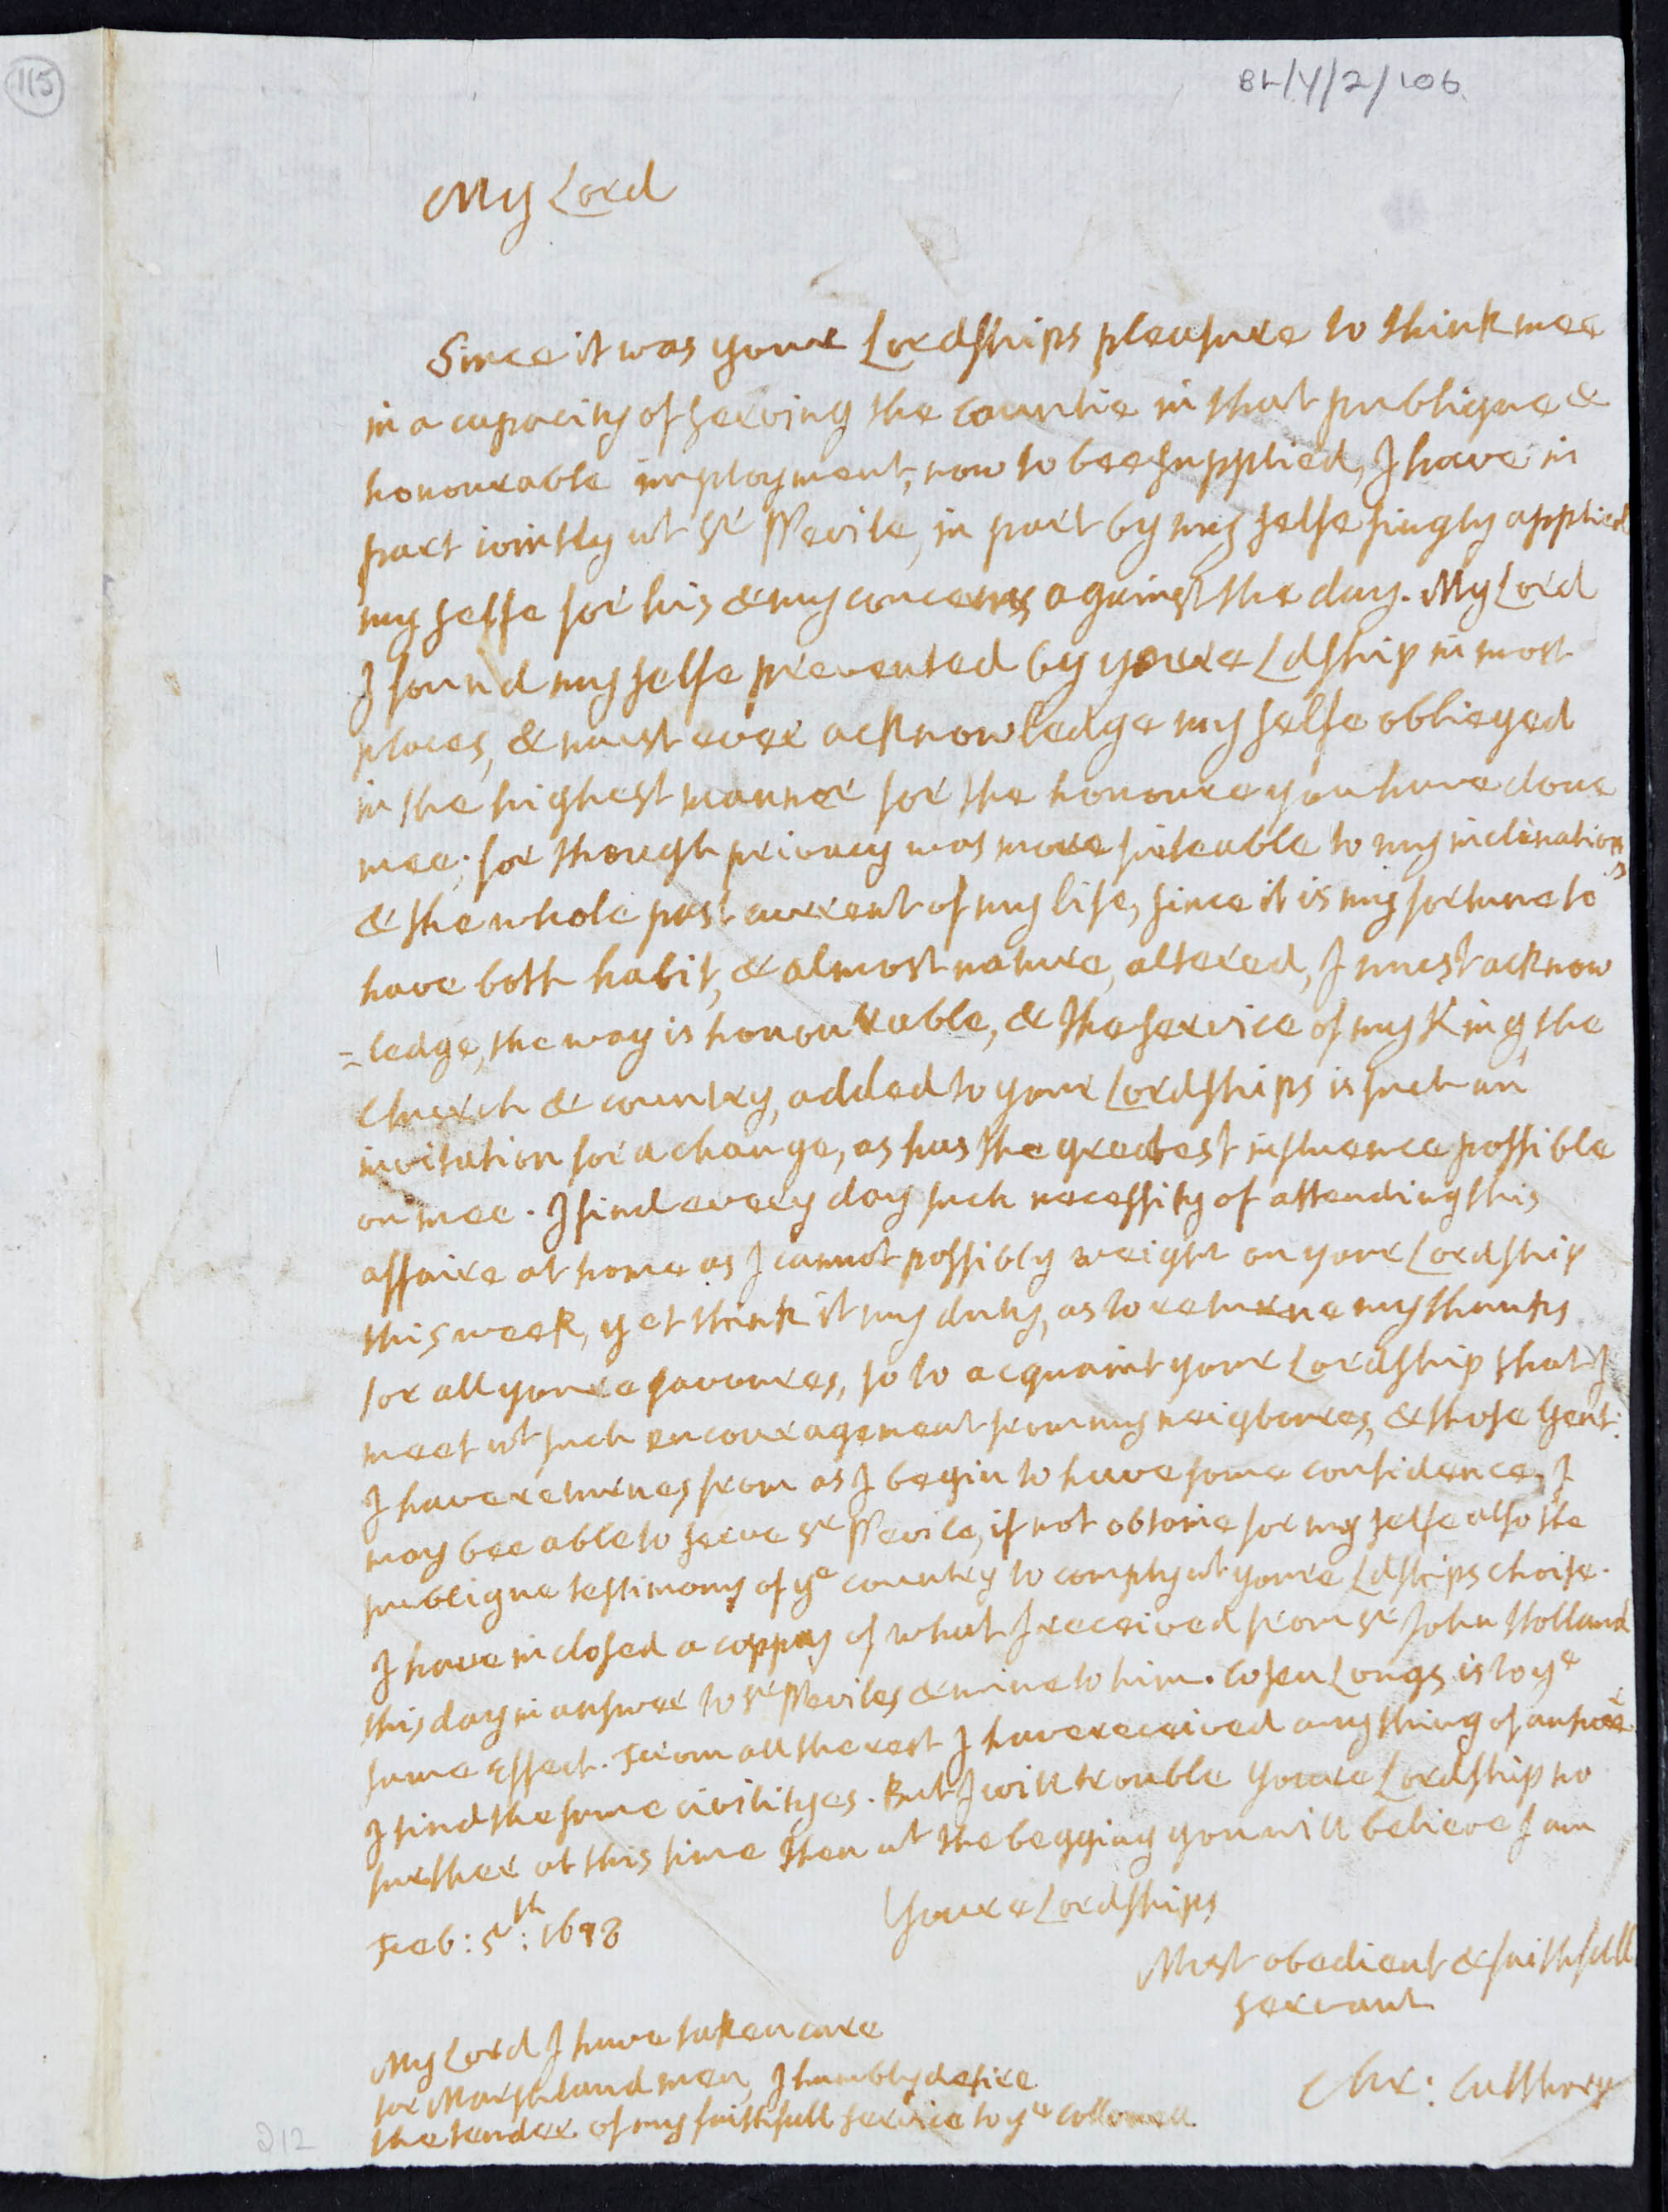 115
BL/Y/2/106
My Lord
Since it was your Lordships pleasure to think mee
in a capacity of serving the Countie in that publique &
honourable imployment, now to bee supplied, I have in
part iointly wt Sr Nevile, in part by my selfe singly applied
my selfe for his & my concerns against the day. My Lord
I found my selfe prevented by youre Ldship in most
places, & must ever acknowledge my selfe oblieged
in the highest manner for the honoure you have done
mee; for though privacy was more suteable to my inclinations
& the whole past current of my life, since it is my fortune to
have both habit, & almost nature, altered, I must acknow
=ledge, the way is honourable, & the service of my King, the
Church & country, added to your Lordships is such an
invitation for a change, as has the greatest influence possible
on mee. I find every day such necessity of attending this
affaire at home as I cannot possibly weight on your Lordship
this week, yet think it my duty, as to returne my thanks
for all youre favoures, so to acquaint your Lordship that I
meet wt such encouragement from my neigboures, & those Gent:
I have returnes from as I begin to have some confidence, I
may bee able to serve Sr Nevile, if not obtaine for my selfe also the
publique testimony of ye country to comply wt youre Ldships choise.
I have inclosed a coppy of what I received from Sr John Holland
this day in answer to Sr Neviles & mine to him. Longs is to ye
same Effect. From all the rest I have received any thing of answer
I find the same civilityes. But I will trouble Youre Lordship no
further at this time then wt the begging you will believe I am
Youre Lordships
Feb: 5th: 1678
Most obedient & faithfull
servant
My Lord I have taken care
for Marshland men, I humbly desire
the tender of my faithfull service to ye Collonell
Chr: Calthorpe
212